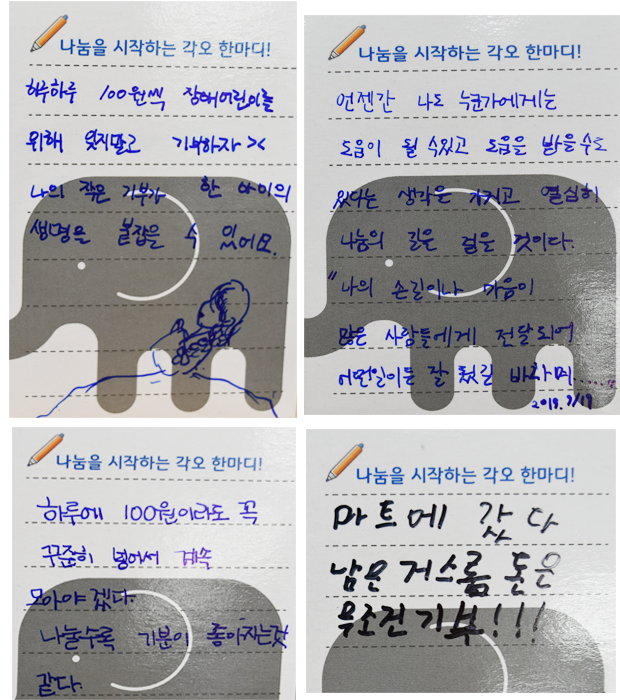 나눔을 시작하는 각오 한마디!
하루하루 100원씩 장애어린이를
위해 잊지말고 기부하자 ><
나의 작은 기부가 한 아이의
생명을 붙잡을 수 있어요.
나눔을 시작하는 각오 한마디!
언젠간 나도 누군가에게는
도움이 될 수있고 도움을 받을수도
있다는 생각을 가지고 열심히
나눔의 길을 걸을 것이다.
"나의 손길이나 마음이
많은 사람들에게 전달되어
어떤일이든 잘 됬길 바라며......"
2018.
나눔을 시작하는 각오 한마디!
하루에 100원이라도 꼭
꾸준히 넣어서 계속
모아야겠다.
나눌수록 기분이 좋아지는것
같다.
나눔을 시작하는 각오 한마디!
마트에 갔다
남은 거스름 돈은
무조건 기부!!!